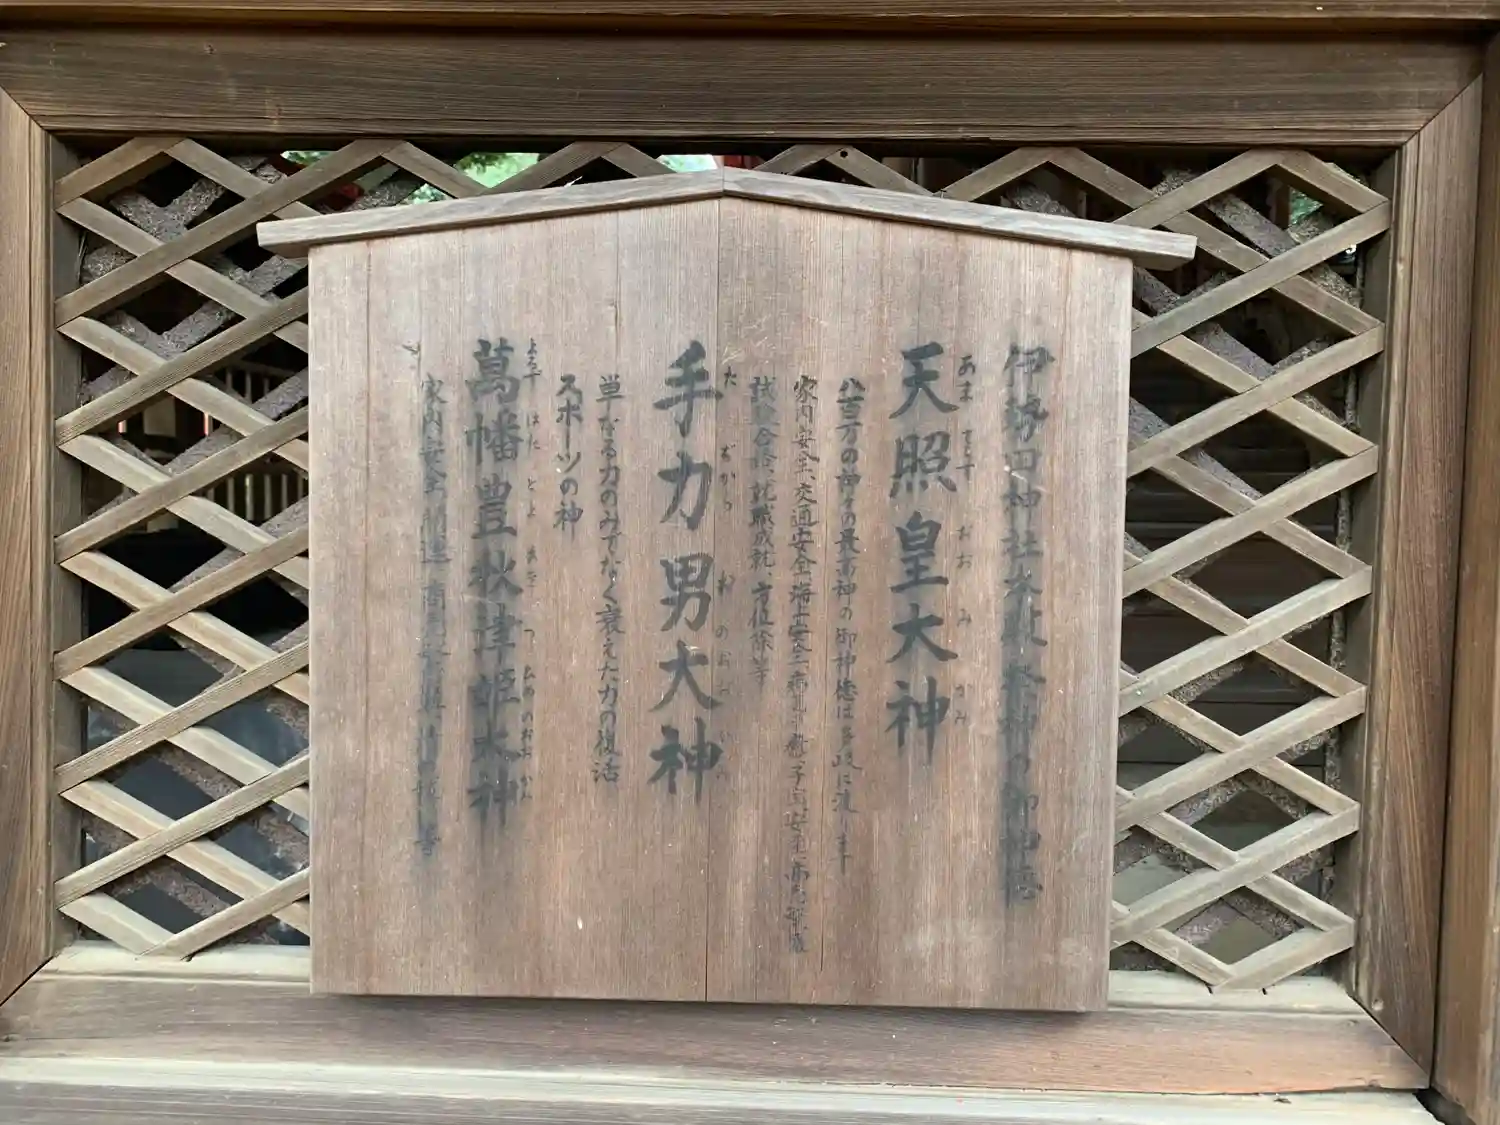 伊勢田神社祭神の御神徳
あま てらす おお み かみ
天照皇大神
八百万の神々の最高神の御神徳は多岐に渡ります
家内安全、交通安全、海上安全、病気平癒、子宝安産、商売
試験合格、就職成就、方位除等
た ぢから おのおお
手力男大神
単なる力のみでなく衰えた力の復活
スポーツの神
よろず はた とよ あきつ ひめのおおかみ
萬幡豊秋津姫大神
家内安全 開運 商売